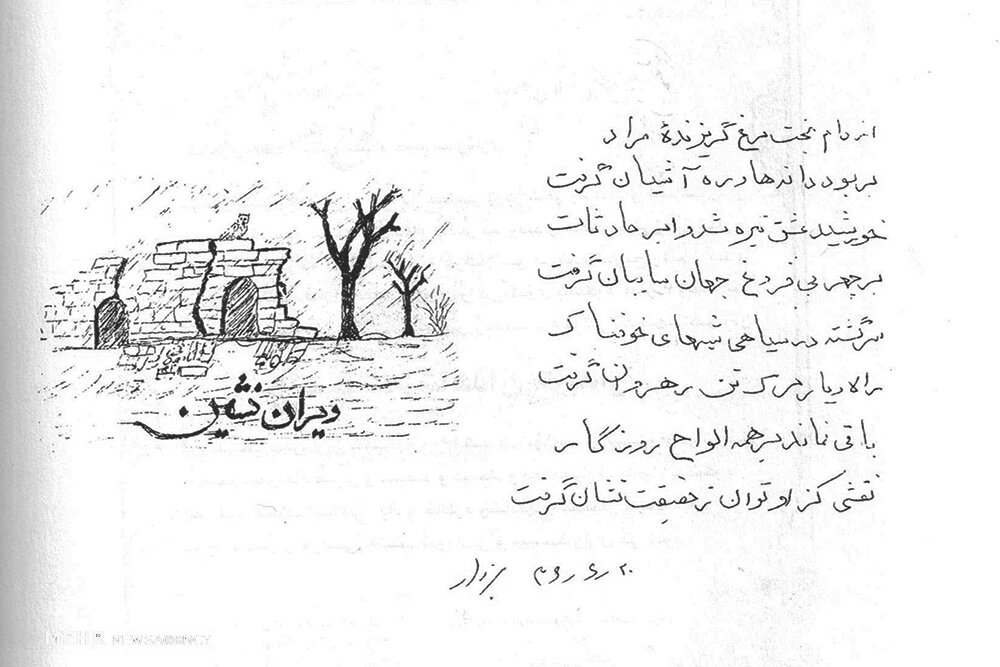 از دام بخت مرغ گریزندهٔ مراد
بر بود دانه‌ها و ره آشیان گرفت
خورشید عشق تیره شد و ابر حادثات
بر چهر بی فروغ جهان سایبان گرفت
سرگشته در سیاهی شبهای خوفناک
راه دیار مرگ تن رهروان گرفت
باقی نماند بر همه الواح روزگار
نقشی کز او توان ز حقیقت نشان گرفت
ویران نشین
NEWSAGENCY